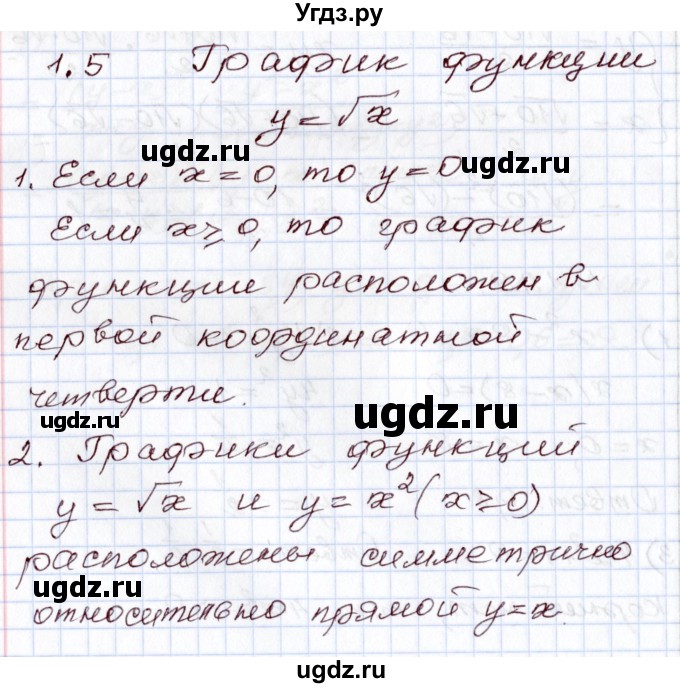 Угдз.ру
1.5 График функции
y = √x
ugdz.ru
ugdz.ru
1. Если x = 0, то y = 0
Если x ≥ 0, то график
функции расположен в
первой координатной
четверти.
ugdz.ru
ugdz.ru
2. Графики функций
y = √x и y = x² (x ≥ 0)
расположены симметрично
ugdz.ru
ugdz.ru
относительно прямой y = x.
ugdz.ru